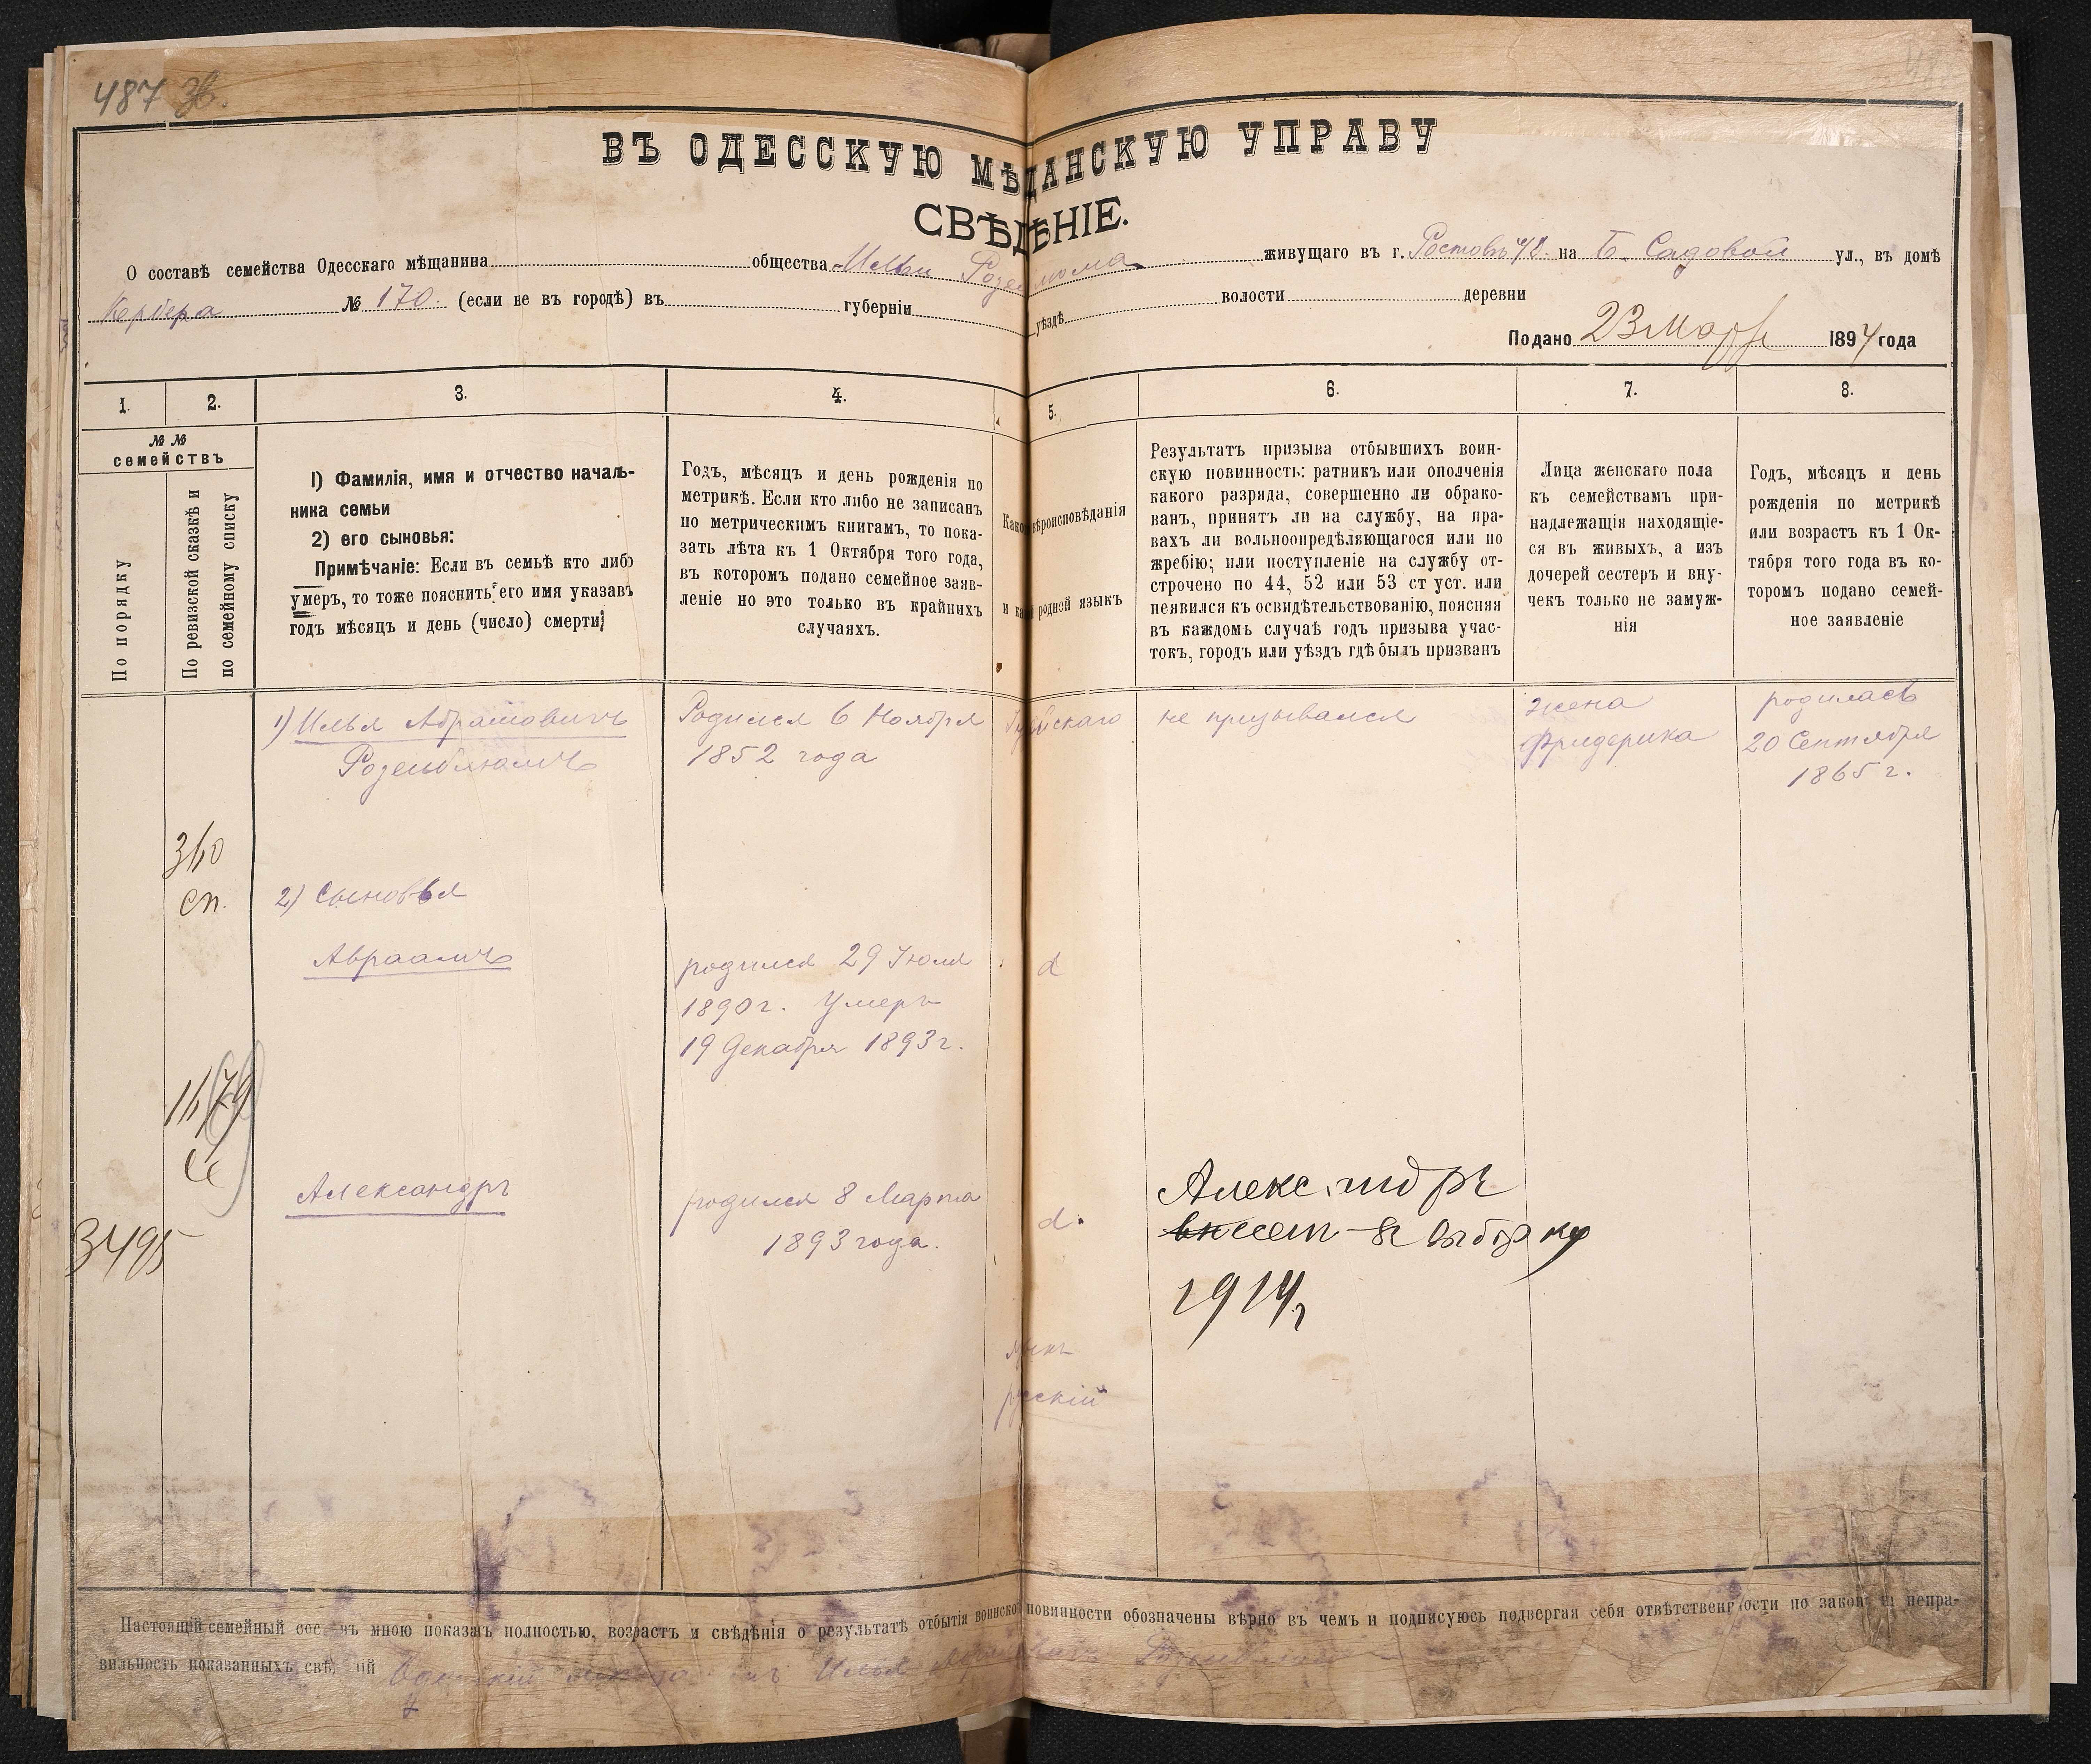 487 Зв.
ВЪ ОДЕССКУЮ МѢЩАНСКУЮ УПРАВУ
СВѢДѢНІЕ.
О составѣ семейства Одесскаго мѣщанина общества Ильи Розенблюма живущаго въ г. Ростовъ н/Д. на Б. Садовой ул., въ домѣ
№ 170. (если не въ городѣ) въ губерніи уѣздѣ волости деревни
Подано 23 Марта 1894 года
1. 2. 3. 4. 5. 6. 7. 8.
№№ семействъ
По порядку
По ревизской сказкѣ и
по семейному списку
I) Фамилія, имя и отчество началь-
ника семьи
2) его сыновья:
Примѣчаніе: Если въ семьѣ кто либо
умеръ, то тоже пояснить его имя указавъ
годъ мѣсяцъ и день (число) смерти;
Годъ, мѣсяцъ и день рожденія по
метрикѣ. Если кто либо не записанъ
по метрическимъ книгамъ, то пока-
зать лѣта къ 1 Октября того года,
въ которомъ подано семейное заяв-
леніе но это только въ крайнихъ
случаяхъ.
Какого вѣроисповѣданія
и какой родной языкъ
Результатъ призыва отбывшихъ воин-
скую повинность: ратникъ или ополченія
какого разряда, совершенно ли обрако-
ванъ, принятъ ли на службу, на пра-
вахъ ли вольноопредѣляющагося или по
жребію; или поступленіе на службу от-
строчено по 44, 52 или 53 ст уст. или
неявился къ освидѣтельствованію, поясняя
въ каждомъ случаѣ годъ призыва учас-
токъ, городъ или уѣздъ гдѣ былъ призванъ
Лица женскаго пола
къ семействамъ при-
надлежащія находящіе-
ся въ живыхъ, а изъ
дочерей сестеръ и вну-
чекъ только не замуж-
нія
Годъ, мѣсяцъ и день
рожденія по метрикѣ
или возрастъ къ 1 Ок-
тября того года въ ко-
торомъ подано семей-
ное заявленіе
1) Илья Абрамовичъ
Розенблюмъ
Родился 6 Ноября
1852 года
Іудейскаго
не призывался
жена
Фридерика
родилась
20 Сентября
1865 г.
сп.
2) Сыновья
Авраамъ
родился 29 Іюля
1890 г. Умеръ
19 Декабря 1893 г.
d
3495
Александръ
родился 8 Марта
1893 года.
d.
Александръ
внесен въ выборку
1914 г
языкъ
русскій
Настоящій семейный составъ мною показанъ полностью, возрастъ и свѣдѣнія о результатѣ отбытія воинской повинности обозначены вѣрно въ чемъ и подписуюсь подвергая себя отвѣтственности по закону за непра-
вильность показанныхъ свѣдѣній Одесскій мѣщанинъ Илья Абрамовичъ Розенблюмъ